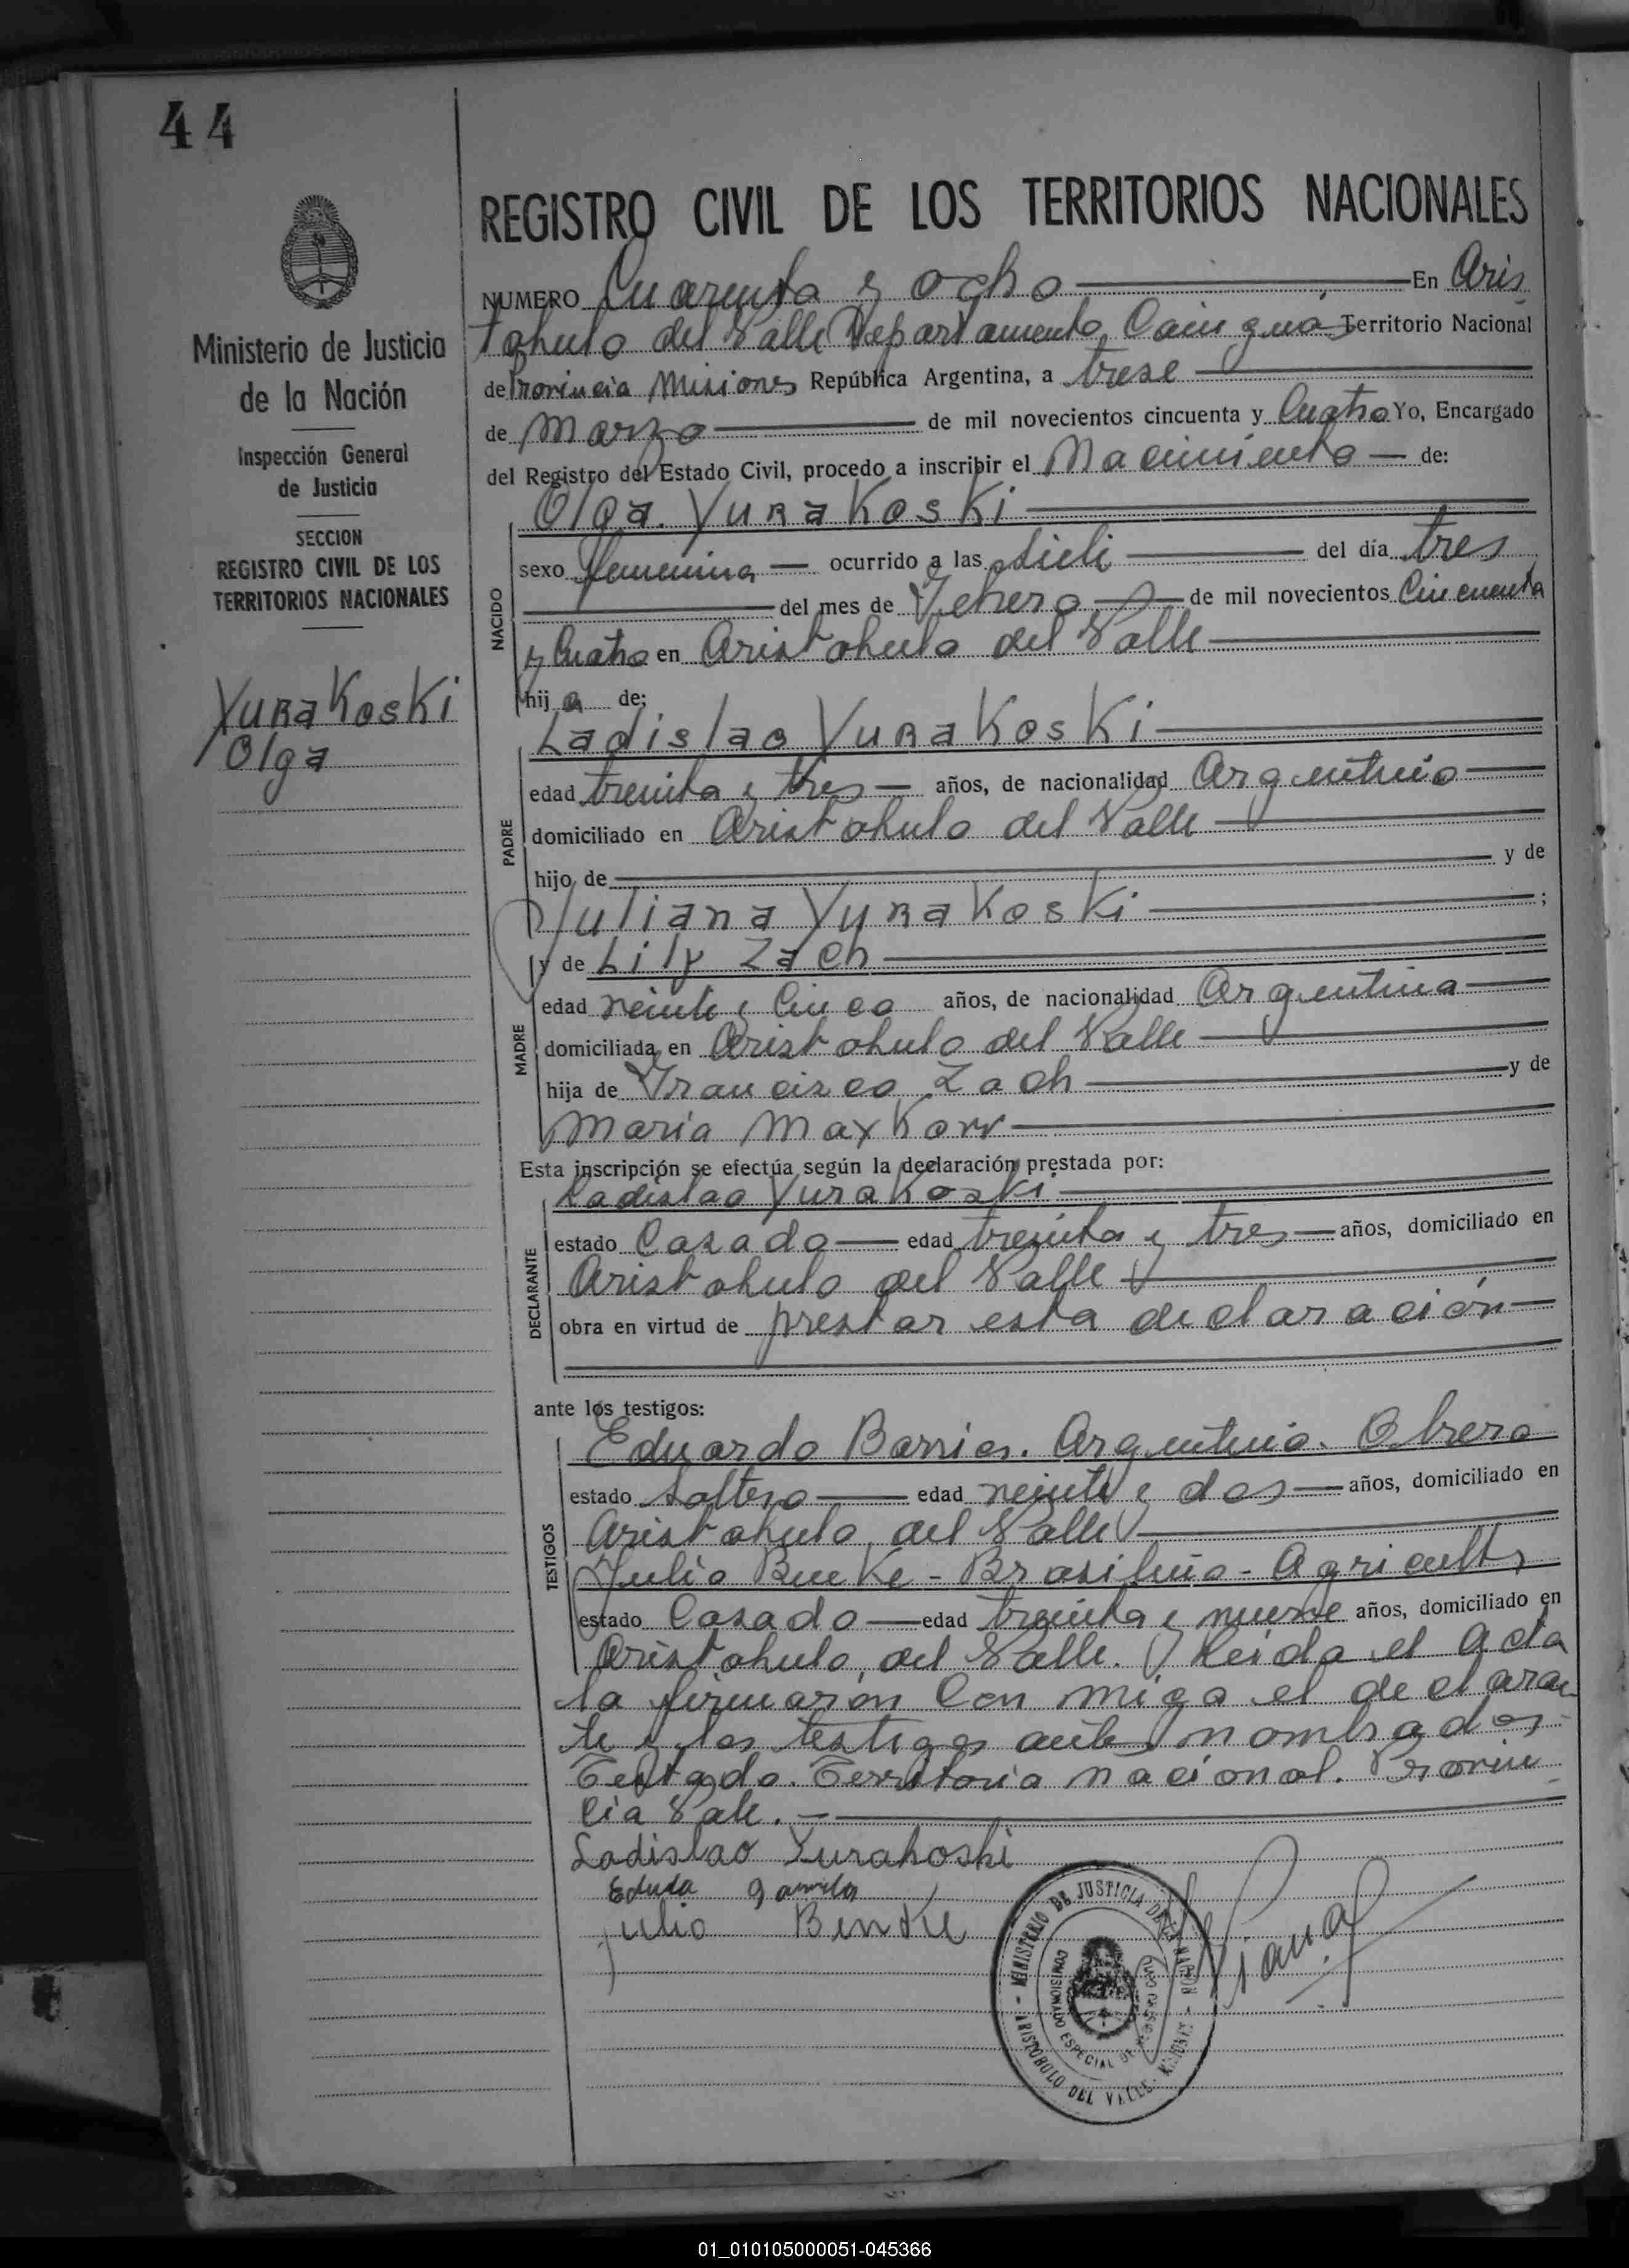 44
Ministerio de Justicia
de la Nación
Inspección General
de Justicia
SECCION
REGISTRO CIVIL DE LOS
TERRITORIOS NACIONALES
YuraKoski
Olga
REGISTRO CIVIL DE LOS TERRITORIOS NACIONALES
NUMERO Cuarenta y ocho En Aris
tobulo del Valle Departamento Cainguás Territorio Nacional
de Provincia Misiones República Argentina, a trese
de Marzo de mil novecientos cincuenta y Cuatro Yo, Encargado
del Registro del Estado Civil, procedo a inscribir el Nacimiento de:
Olga YuraKoski
NACIDO
sexo femenina ocurrido a las siete del día tres
del mes de Fehero de mil novecientos Cincuenta
y Cuatro en Aristobulo del Valle
hija de:
Ladislao YuraKoski
PADRE
edad treinta y tres años, de nacionalidad Argentino
domiciliado en Aristobulo del Valle
hijo de y de
Juliana YuraKoski ;
y de Lily Zach
MADRE
edad veinte y Cinco años, de nacionalidad Argentina
domiciliada en Aristobulo del Valle
hija de Francisco Zach y de
Maria MaxKorr
Esta inscripción se efectúa según la declaración prestada por:
Ladislao YuraKoski
DECLARANTE
estado Casado edad treinta y tres años, domiciliado en
Aristobulo del Valle
obra en virtud de prestar esta declaración
ante los testigos:
TESTIGOS
Eduardo Barrios. Argentino. Obrero
estado Soltero edad veinte y dos años, domiciliado en
Aristobulo del Valle
Julio BueKe - Brasileño - Agricult
estado Casado edad treinta y nueve años, domiciliado en
Aristobulo del Valle. Leida el Acta
la firmarón Con migo el declaran
te y los testigos ante nombrados
Testado. Territorio nacional. Provin
cia Vale.
Ladislao Yurakoski
Julio
MINISTERIO DE JUSTICIA DE LA NACION
COMISIONADO ESPECIAL DE
ARISTOBULO DEL VALLE - MISIONES
01_010105000051-045366